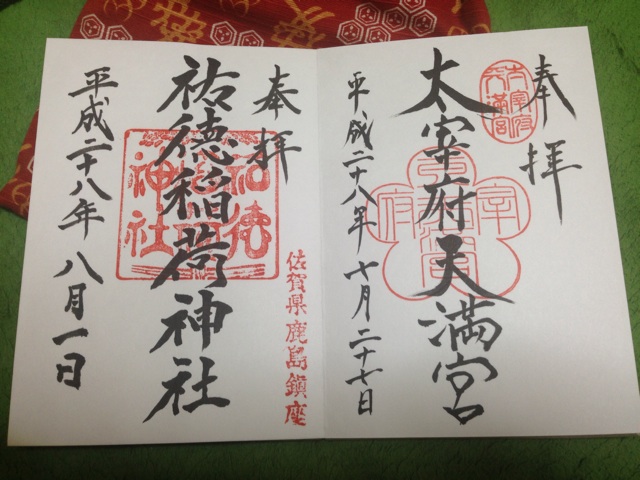 奉拝
太宰府天満宮
太宰府
天満宮
平成二十八年十月二十七日
奉拝
祐徳稲荷神社
佐賀県鹿島鎮座
平成二十八年八月一日